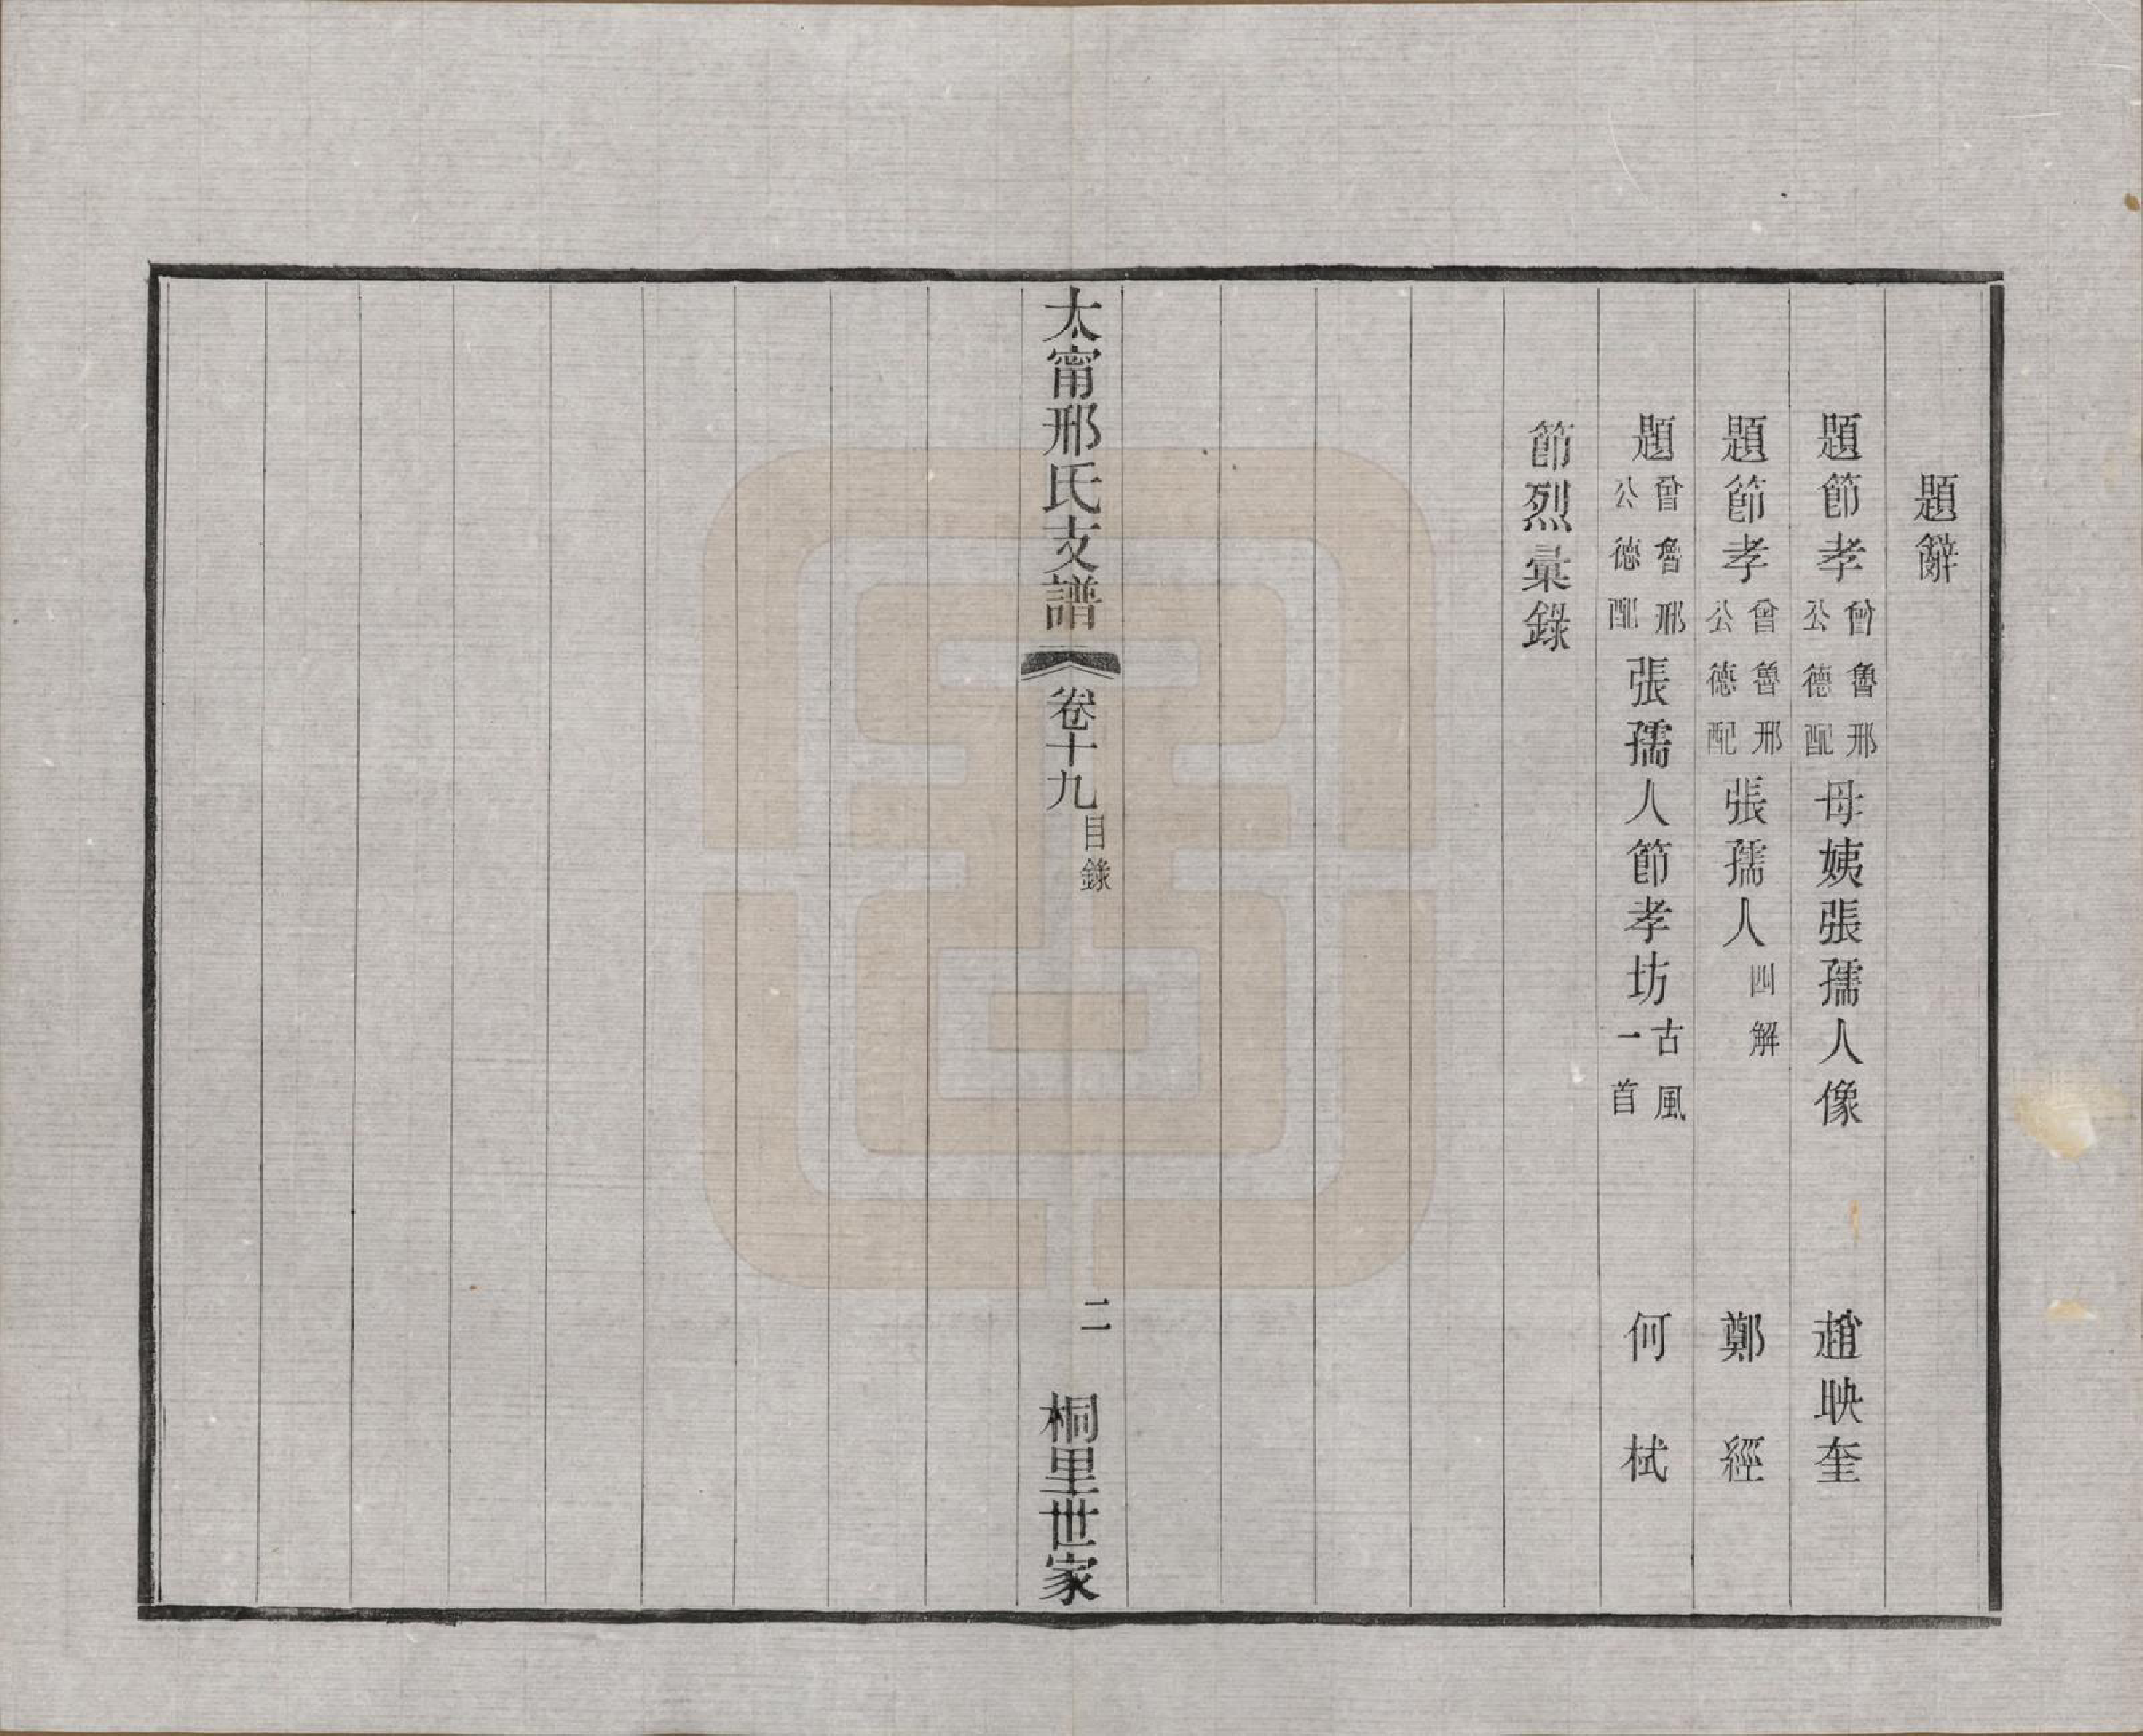 題辭
題節孝曾魯邢公德配母姨張孺人像 趙映奎
題節孝曾魯邢公德配張孺人四解 鄭經
題曾魯邢公德配張孺人節孝坊古風一首 何栻
節烈彙錄
太甯邢氏支譜 卷十九 目錄 二 桐里世家